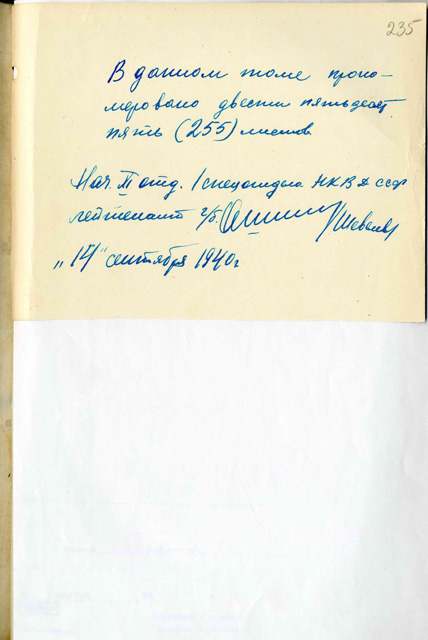 235
В данном томе прону-
меровано двести пятьдесят
пять (255) листов.
Нач. II отд. 1 спецотдела НКВД СССР
лейтенант г/б.
"14" сентября 1940г